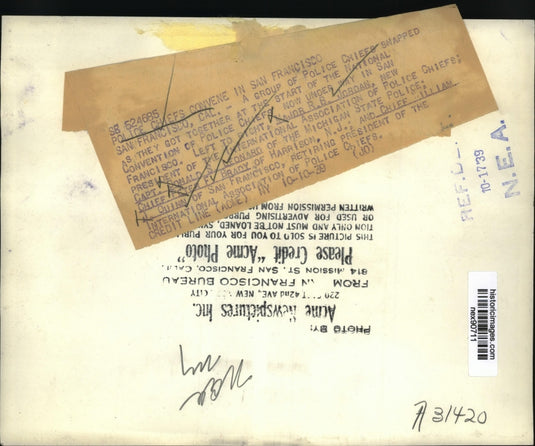 SB 624685
POLICE CHIEFS CONVENE IN SAN FRANCISCO
SAN FRANCISCO, CAL. - A GROUP OF POLICE CHIEFS SNAPPED
AS THEY GOT TOGETHER AT THE START OF THE NATIONAL
CONVENTION OF POLICE CHIEFS NOW UNDER WAY IN SAN
FRANCISCO. LEFT TO RIGHT: JORDAN, NEW
PRESIDENT OF INTERNATIONAL ASSOCIATION OF POLICE CHIEFS;
CAPT. DONALD LEONARD OF THE MICHIGAN STATE POLICE;
CHIEF BRADY OF HARRISON, N.J., AND CHIEF WILLIAM
QUINN OF SAN FRANCISCO, RETIRING PRESIDENT OF THE
INTERNATIONAL ASSOCIATION OF POLICE CHIEFS.
CREDIT LINE (ACME) NY 10-10-39 (JD)
REF.
10-17-39
N.E.A.
historicimages.com
nex90711
PHOTO BY:
Acme Newspictures Inc.
220 42nd AVE, NEW CITY
FROM SAN FRANCISCO BUREAU
814 MISSION ST. SAN FRANCISCO, CALIF.
Please Credit "Acme Photo"
THIS PICTURE IS SOLD TO YOU FOR YOUR
TION ONLY AND MUST NOT BE LOANED,
OR USED FOR ADVERTISING
WRITTEN PERMISSION FROM
A 31420